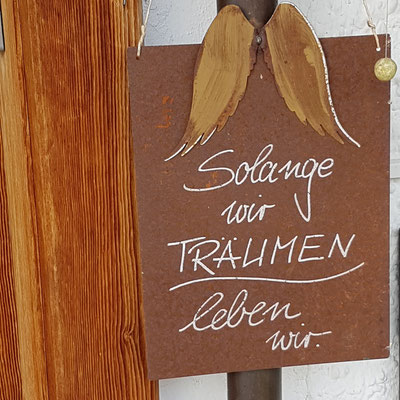 Solange
wir
TRÄUMEN
leben
wir.